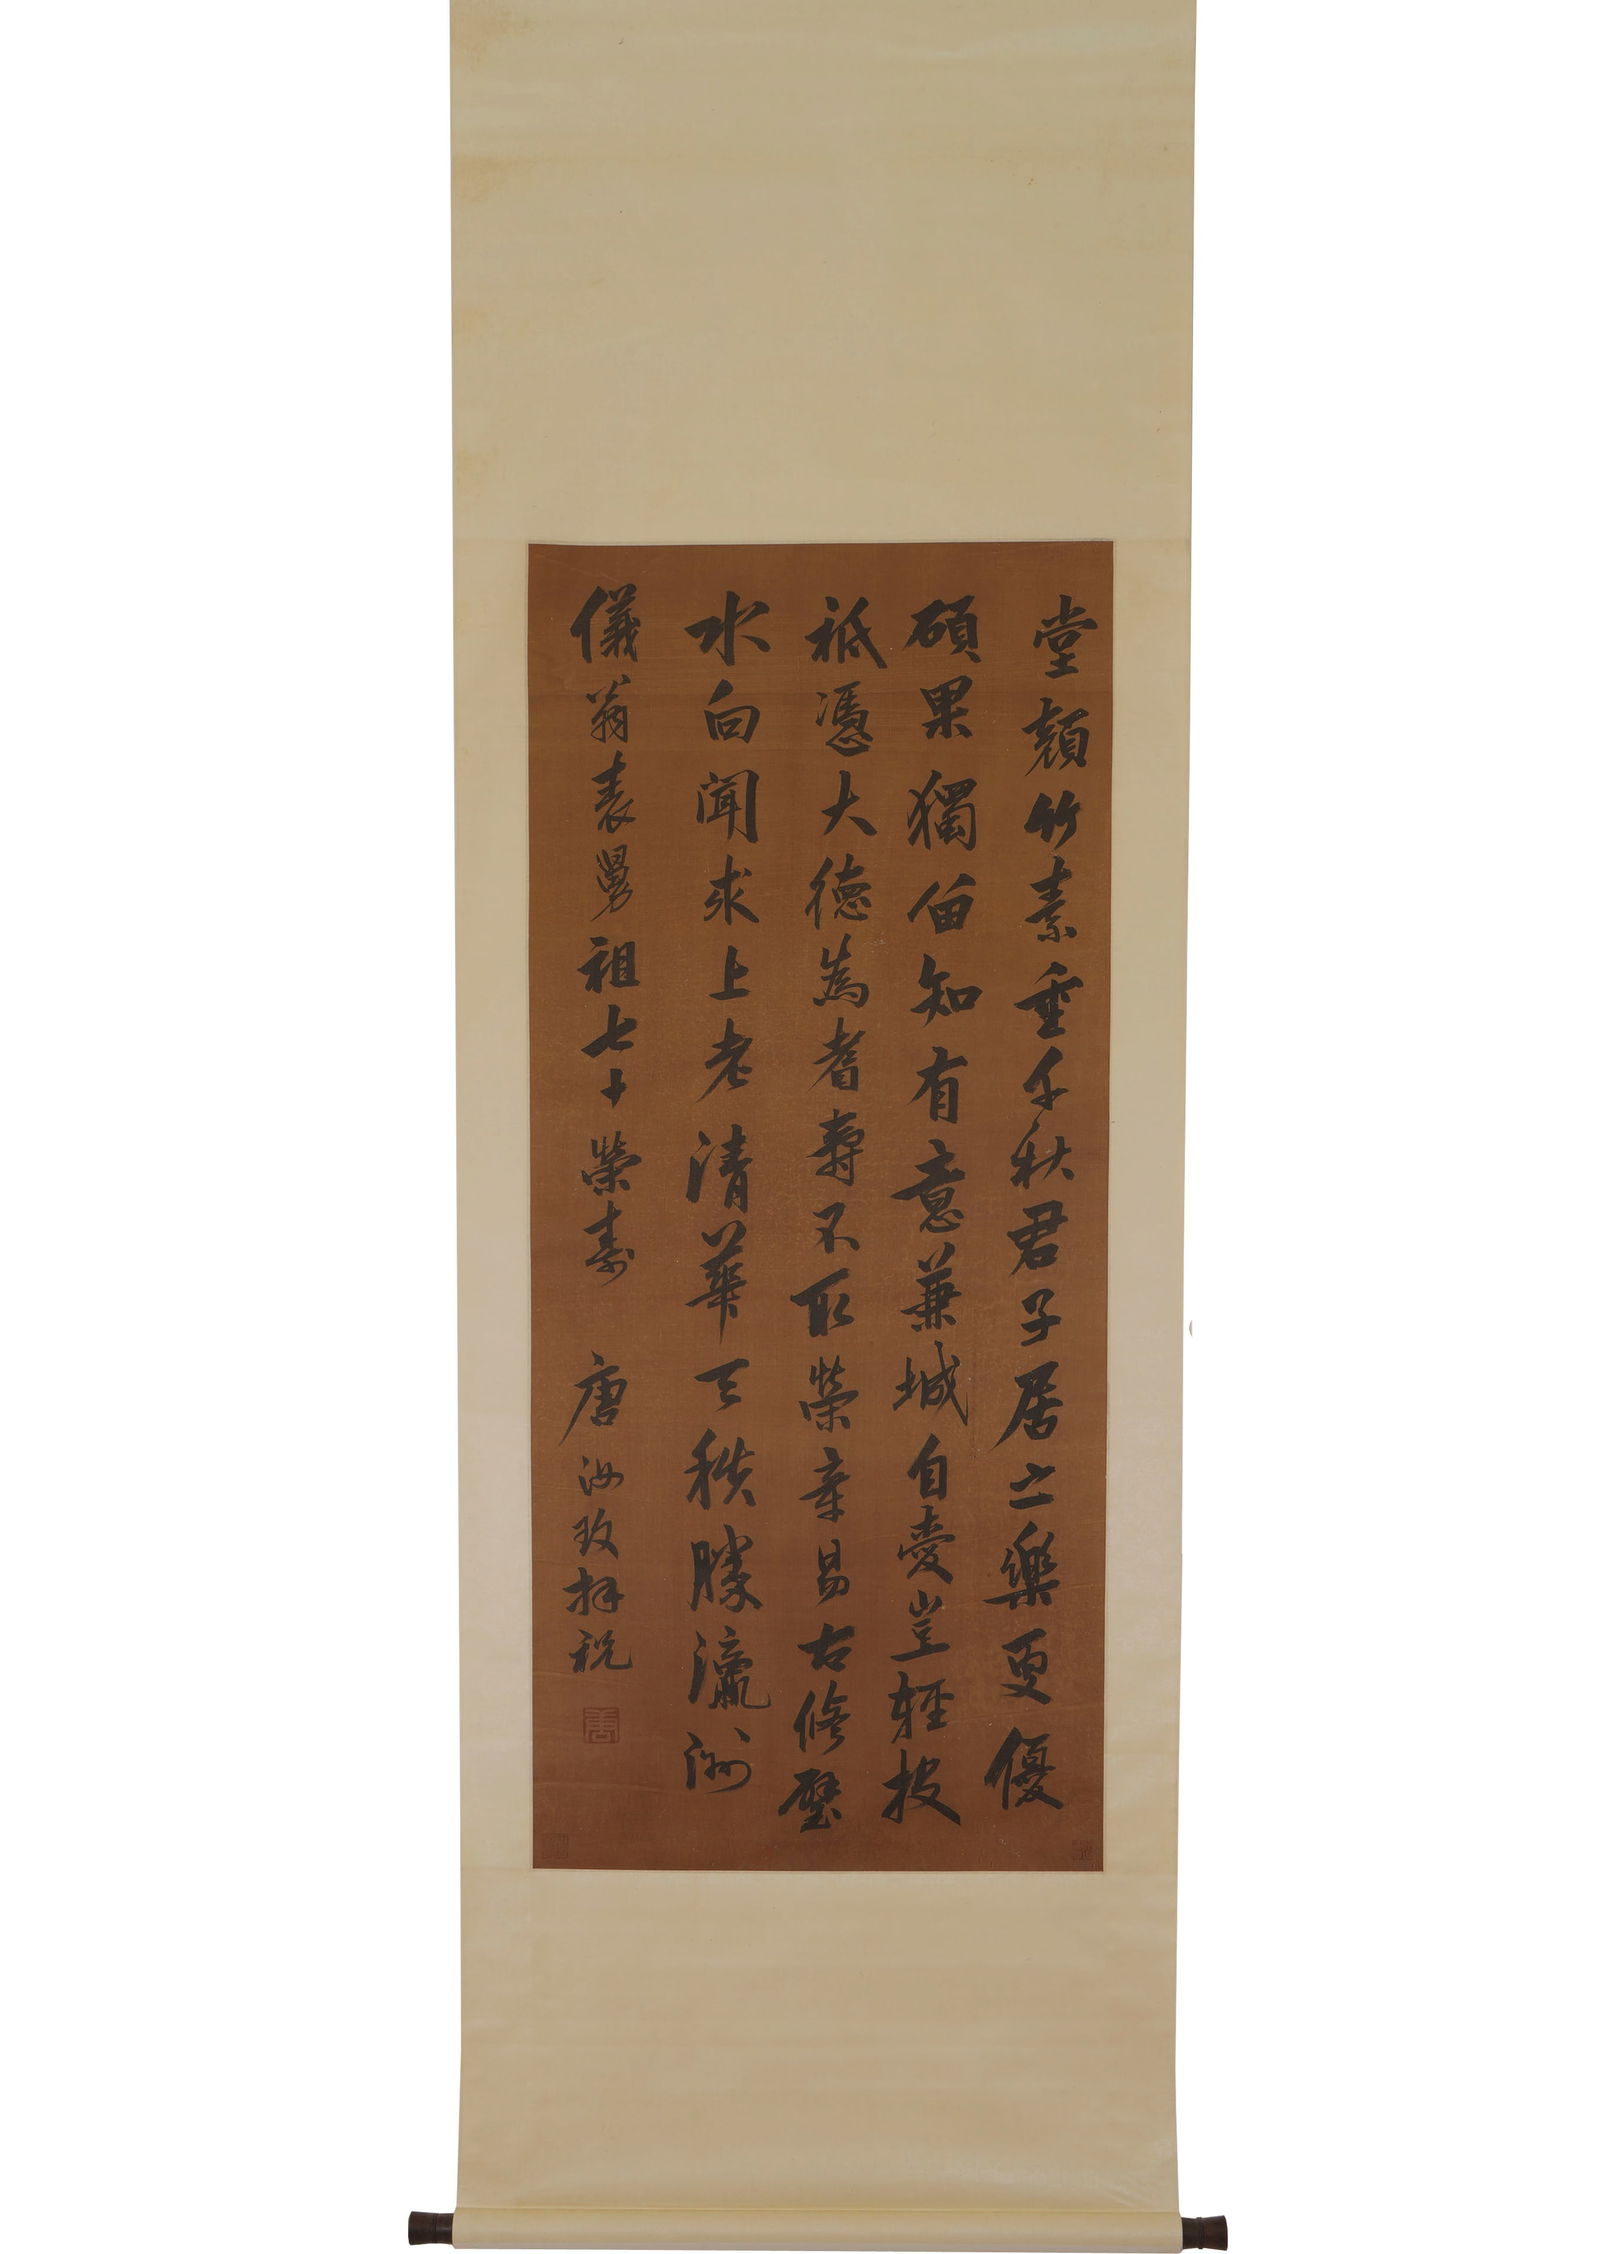 堂顏竹素垂千秋君子居之樂更優
碩果獨留知有意兼城自愛豈輕投
祗憑大德為耆壽不取榮章易古修璧
水向聞求上老清華天秩勝瀛洲
儀翁表舅祖七十榮壽 唐汝玫拜祝